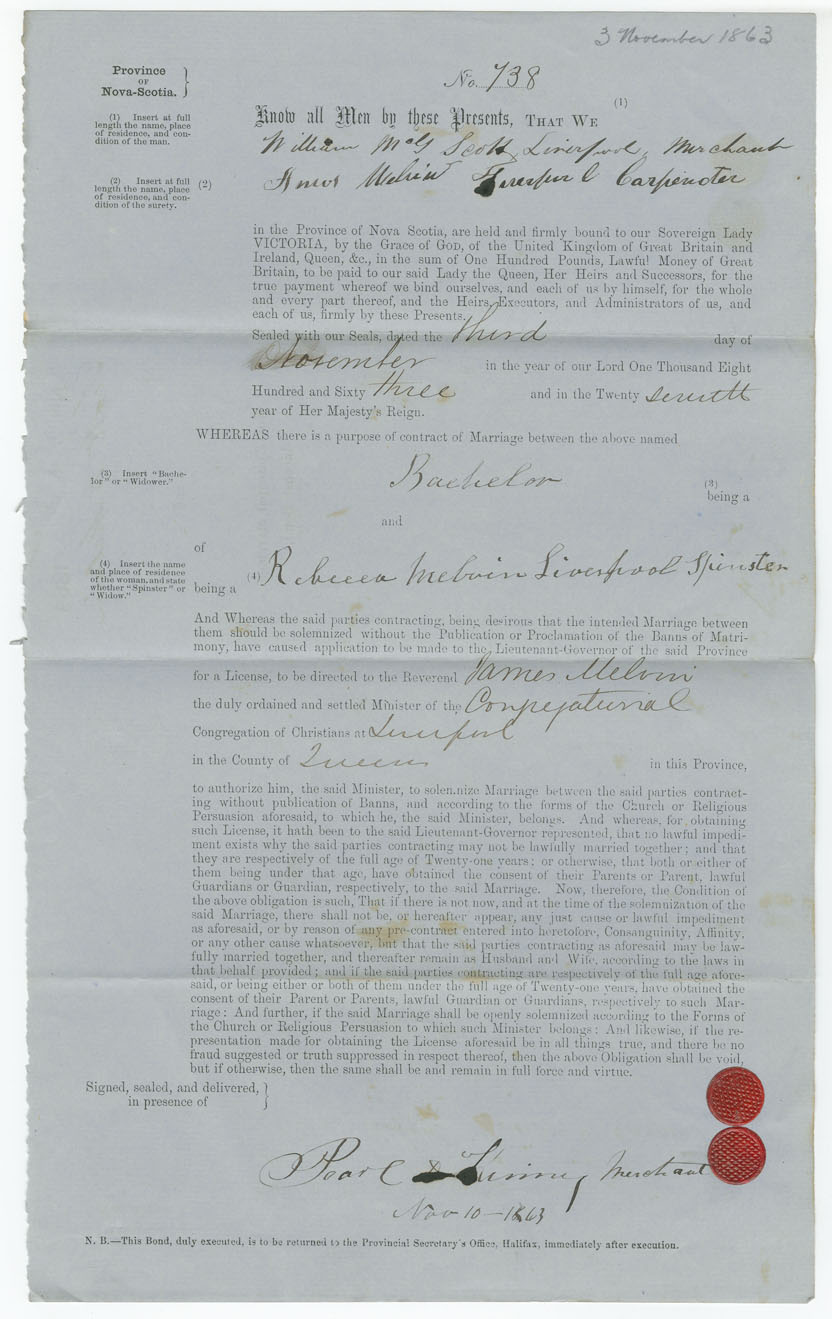 3 November 1863
Province
OF
Nova-Scotia.
No. 738
(1)
(1) Insert at full
length the name, place
of residence, and con-
dition of the man.
Know all Men by these Presents, THAT WE
William McG Scott Liverpool, Merchant
(2) Insert at full
length the name, place
of residence, and con-
dition of the surety.
(2)
Melvin Liverpool Carpenter
in the Province of Nova Scotia, are held and firmly bound to our Sovereign Lady
VICTORIA, by the Grace of GOD, of the United Kingdom of Great Britain and
Ireland, Queen, &c., in the sum of One Hundred Pounds, Lawful Money of Great
Britain, to be paid to our said Lady the Queen, Her Heirs and Successors, for the
true payment whereof we bind ourselves, and each of us by himself, for the whole
and every part thereof, and the Heirs, Executors, and Administrators of us, and
each of us, firmly by these Presents.
Sealed with our Seals, dated the third day of
November in the year of our Lord One Thousand Eight
Hundred and Sixty three and in the Twenty seventh
year of Her Majesty's Reign.
WHEREAS there is a purpose of contract of Marriage between the above named
(3) Insert "Bache-
lor" or "Widower."
Bachelor
(3)
being a
and
of
(4) Insert the name
and place of residence
of the woman, and state
whether "Spinster" or
"Widow."
being a
(4) Rebecca Melvin Liverpool Spinster
And Whereas the said parties contracting, being desirous that the intended Marriage between
them should be solemnized without the Publication or Proclamation of the Banns of Matri-
mony, have caused application to be made to the Lieutenant-Governor of the said Province
for a License, to be directed to the Reverend James Melvin
the duly ordained and settled Minister of the Congregational
Congregation of Christians at Liverpool
in the County of Queens in this Province,
to authorize him, the said Minister, to solemnize Marriage between the said parties contract-
ing without publication of Banns, and according to the forms of the Church or Religious
Persuasion aforesaid, to which he, the said Minister, belongs. And whereas, for obtaining
such License, it hath been to the said Lieutenant-Governor represented, that no lawful impedi-
ment exists why the said parties contracting may not be lawfully married together; and that
they are respectively of the full age of Twenty-one years; or otherwise, that both or either of
them being under that age, have obtained the consent of their Parents or Parent, lawful
Guardians or Guardian, respectively, to the said Marriage. Now, therefore, the Condition of
the above obligation is such, That if there is not now, and at the time of the solemnization of the
said Marriage, there shall not be, or hereafter appear, any just cause or lawful impediment
as aforesaid, or by reason of any pre-contract entered into heretofore, Consanguinity, Affinity,
or any other cause whatsoever, but that the said parties contracting as aforesaid may be law-
fully married together, and thereafter remain as Husband and Wife, according to the laws in
that behalf provided; and if the said parties contracting are respectively of the full age afore-
said, or being either or both of them under the full age of Twenty-one years, have obtained the
consent of their Parent or Parents, lawful Guardian or Guardians, respectively to such Mar-
riage: And further, if the said Marriage shall be openly solemnized according to the Forms of
the Church or Religious Persuasion to which such Minister belongs: And likewise, if the re-
presentation made for obtaining the License aforesaid be in all things true, and there be no
fraud suggested or truth suppressed in respect thereof, then the above Obligation shall be void,
but if otherwise, then the same shall be and remain in full force and virtue.
Signed, sealed, and delivered,
in presence of
Merchant
Nov 10 - 1863
N. B.—This Bond, duly executed, is to be returned to the Provincial Secretary's Office, Halifax, immediately after execution.